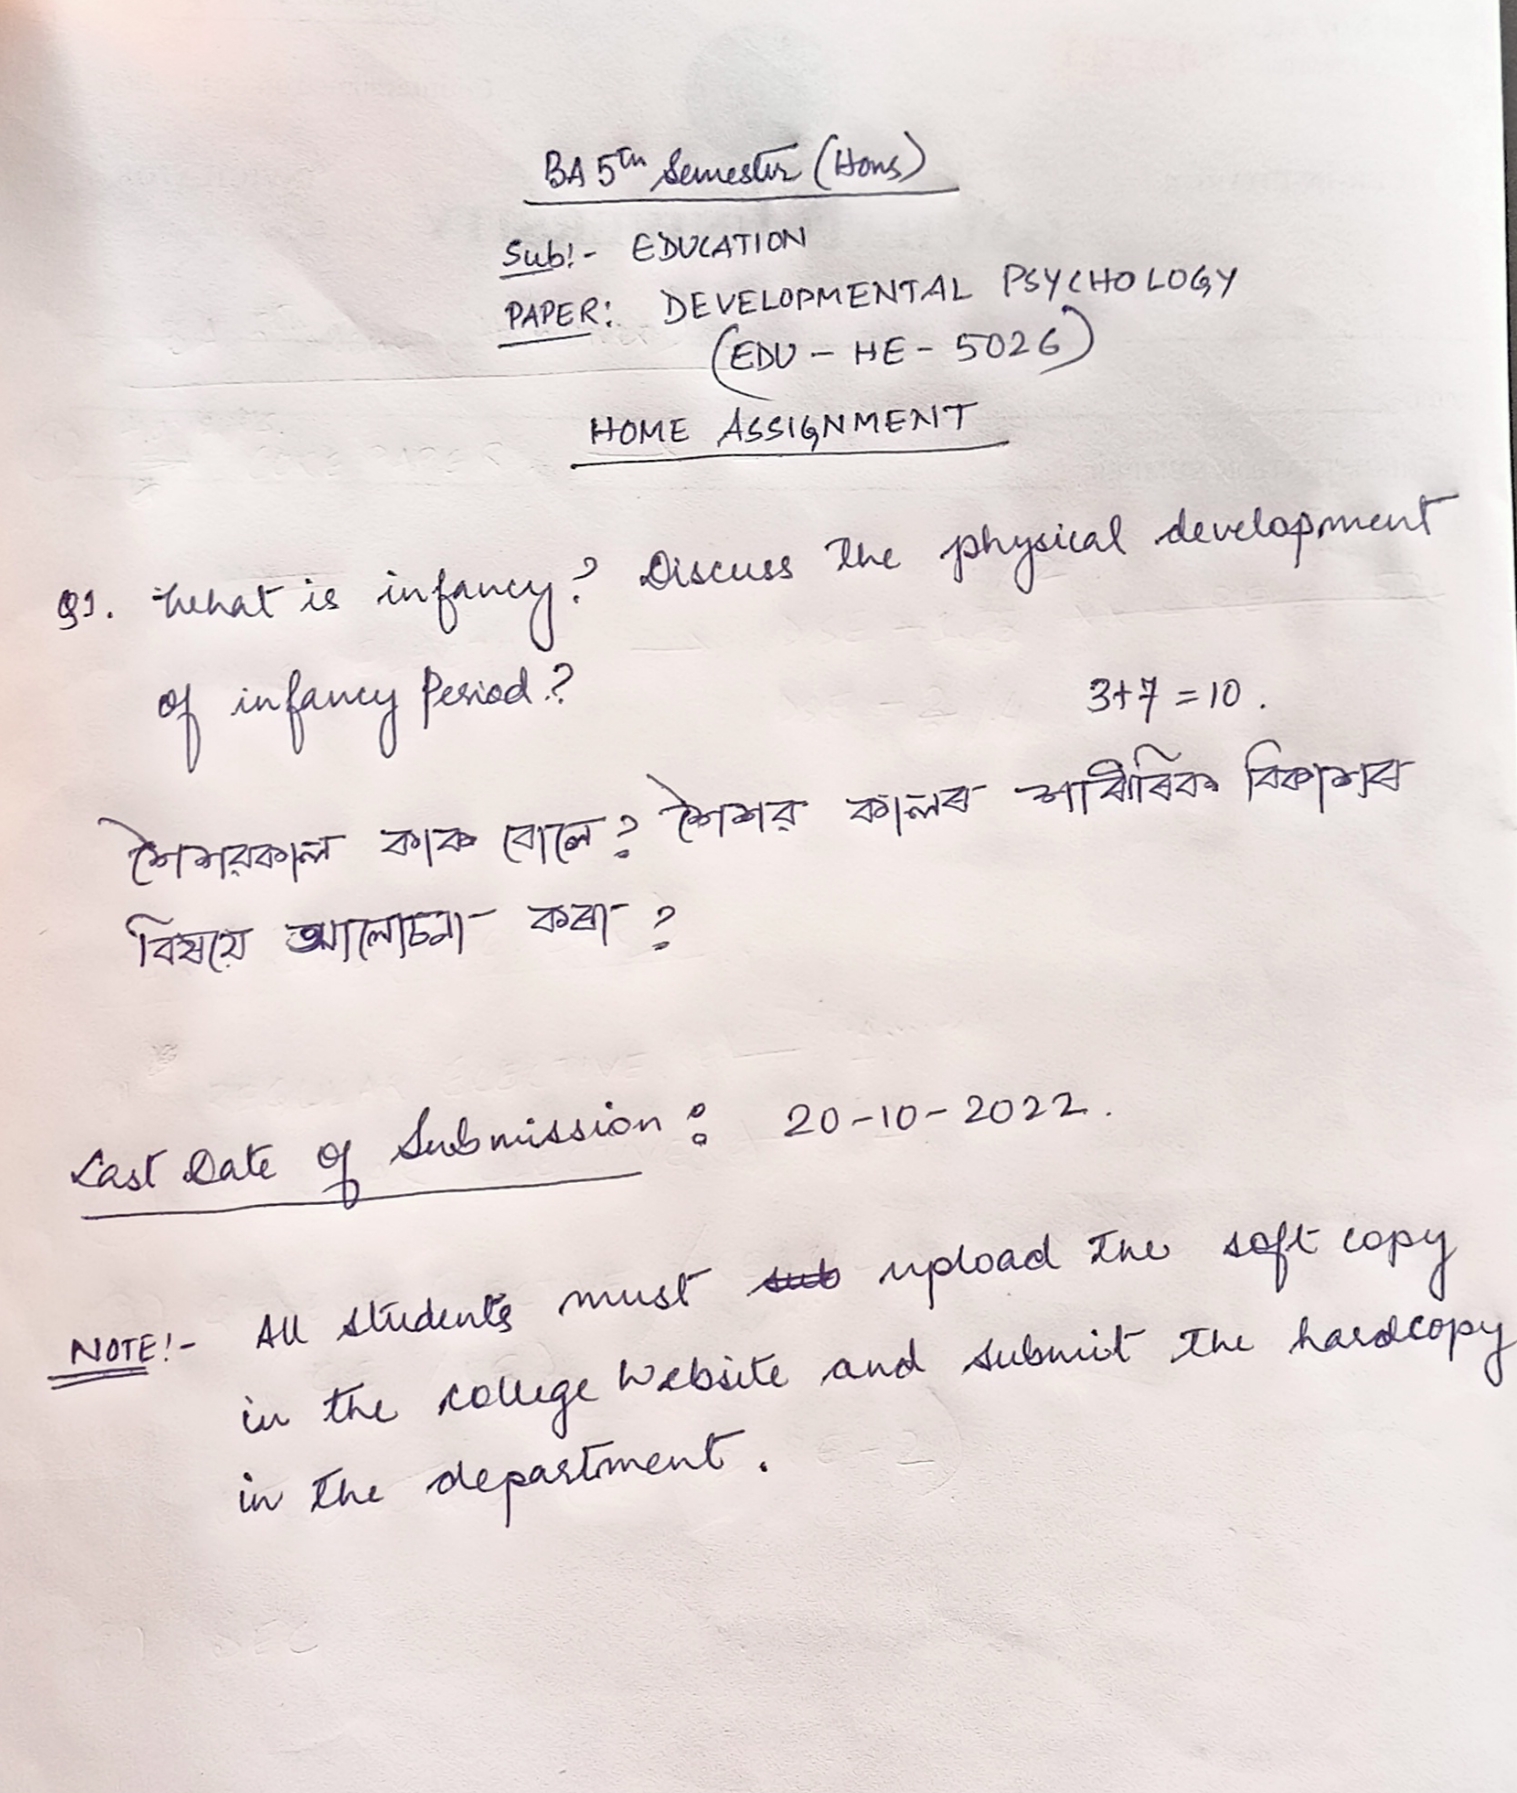 BA 5th Semester (Hons)
Sub:- EDUCATION
PAPER: DEVELOPMENTAL PSYCHOLOGY
(EDU - HE - 5026)
HOME ASSIGNMENT
Q1. What is infancy? Discuss the physical development
of infancy Period?
3+7=10.
শৈশৱকাল কাক বোলে? শৈশৱ কালৰ শাৰীৰিক বিকাশৰ
বিষয়ে আলোচনা কৰা?
Last Date of Submission: 20-10-2022.
NOTE:- All students must sub upload the soft copy
in the college Website and submit the hardcopy
in the department.